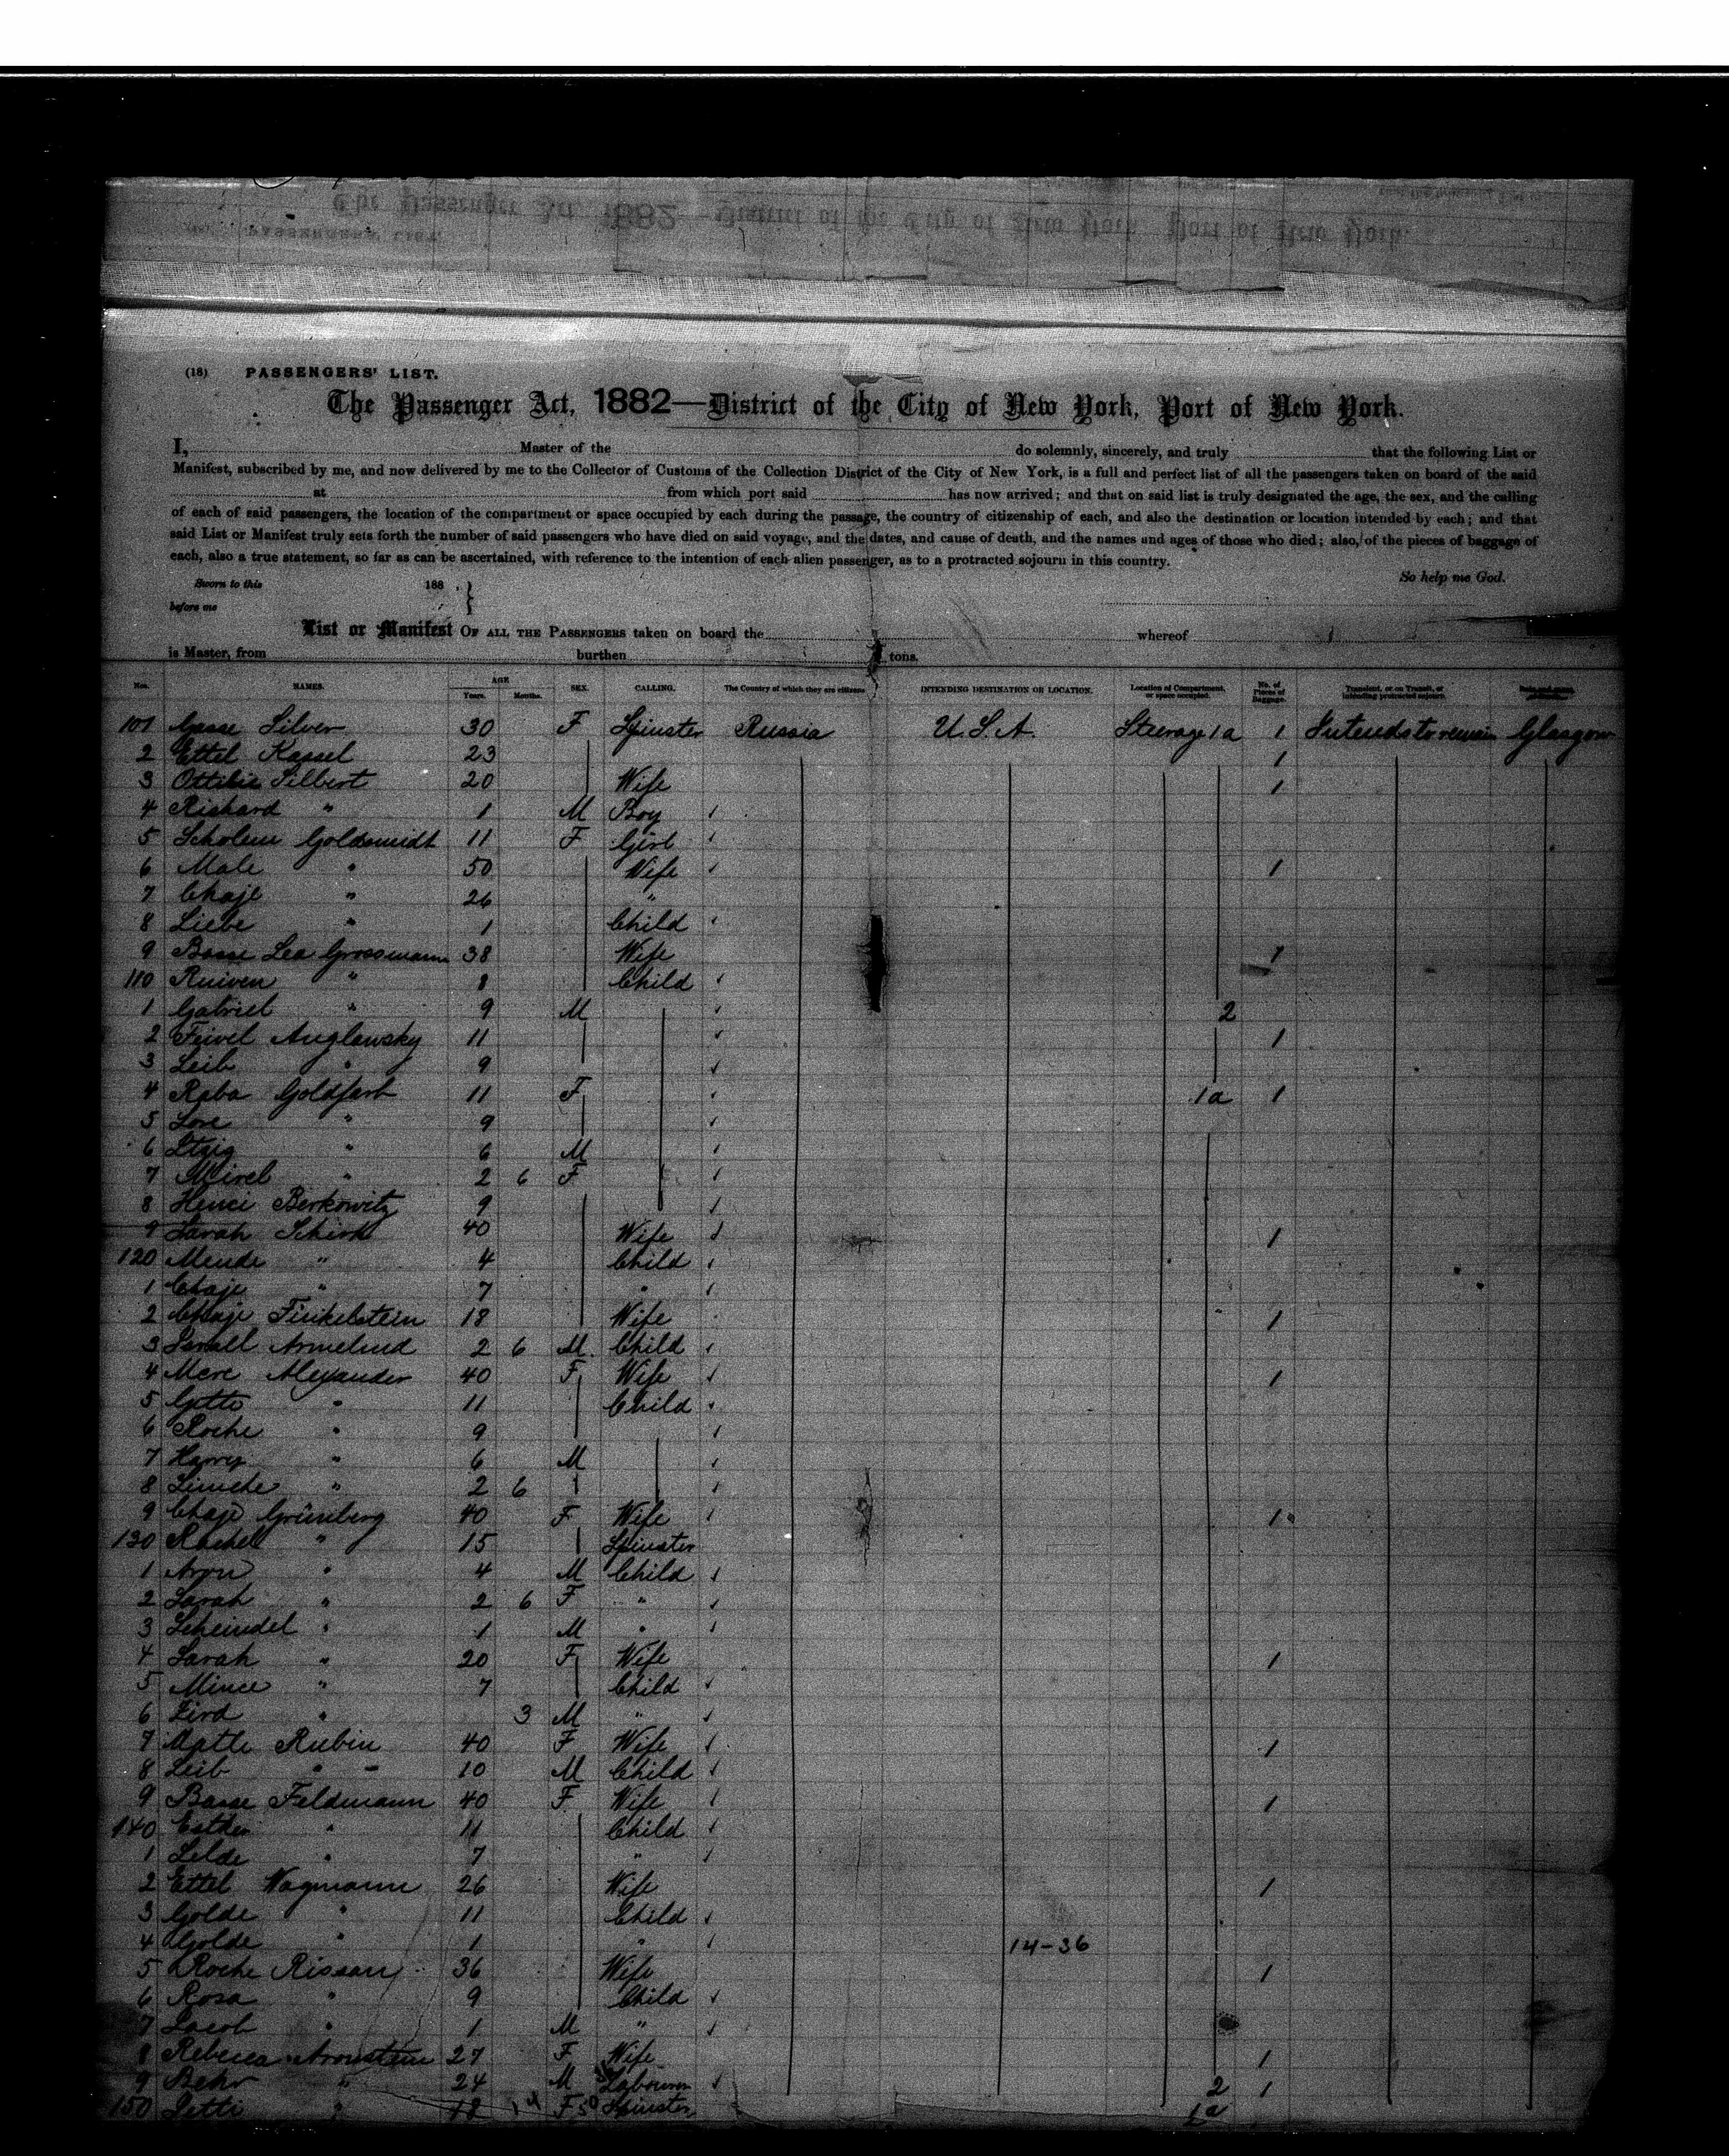 (18) PASSENGERS' LIST.
The Passenger Act, 1882—District of the City of New York, Port of New York.
I, Master of the do solemnly, sincerely, and truly that the following List or
Manifest, subscribed by me, and now delivered by me to the Collector of Customs of the Collection District of the City of New York, is a full and perfect list of all the passengers taken on board of the said
at from which port said has now arrived; and that on said list is truly designated the age, the sex, and the calling
of each of said passengers, the location of the compartment or space occupied by each during the passage, the country of citizenship of each, and also the destination or location intended by each; and that
said List or Manifest truly sets forth the number of said passengers who have died on said voyage, and the dates, and cause of death, and the names and ages of those who died; also, of the pieces of baggage of
each, also a true statement, so far as can be ascertained, with reference to the intention of each alien passenger, as to a protracted sojourn in this country.
So help me God.
Sworn to this 188 .
before me
List or Manifest OF ALL THE PASSENGERS taken on board the whereof
is Master, from burthen tons.
Nos. NAMES. AGE Years. Months. SEX. CALLING. The Country of which they are citizens INTENDING DESTINATION OR LOCATION. Location of Compartment, or space occupied. No. of Pieces of Baggage. Transient, or on Transit, or intending protracted sojourn.
101 Silver 30 F Spinster Russia U.S.A. Steerage 1a 1 Intends to remain Glasgow
2 Ettel Kassel 23 1
3 Ottilie Silbert 20 Wife 1
4 Richard " 1 M Boy
5 Scholem Goldsmidt 11 F Girl
6 Male " 50 Wife 1
7 Chaje " 26 "
8 Liebe " 1 Child
9 Basse Lea Grossmann 38 Wife 1
110 Ruiven " 8 Child
1 Gabriel " 9 M 2
2 Feivel Anglawsky 11 1
3 Leib " 9
4 Raba Goldfarb 11 F 1a 1
5 Lore " 9
6 Itzig " 6 M
7 Mirel " 2 6 F
8 Henci Berkowitz 9
9 Sarah Schirk 40 Wife 1
120 Mende " 4 Child
1 Chaje " 7 "
2 Chaje Finkelstein 18 Wife 1
3 Ismall Armelind 2 6 M. Child
4 Mere Alexander 40 F Wife 1
5 Gette " 11 Child
6 Roche " 9
7 Harry " 6 M
8 Simche " 2 6
9 Chaje Grünberg 40 F Wife 1
130 Rachel " 15 Spinster
1 Aron " 4 M Child
2 Sarah " 2 6 F "
3 Scheindel " 1 M "
4 Sarah " 20 F Wife 1
5 Mince " 7 Child
6 Zird " 3 M "
7 Matte Rubin 40 F Wife 1
8 Leib " 10 M Child
9 Basse Feldmann 40 F Wife 1
140 Esther " 11 Child
1 Selde " 7 "
2 Ettel Wagmann 26 Wife 1
3 Golde " 11 Child
4 Golde " 1 " 14-36
5 Roche Rissan 36 Wife 1
6 Rosa " 9 Child
7 Jacob " 1 M "
8 Rebecca Aronstein 27 F Wife 1
9 Behr " 24 M Labourer 2 1
150 Jetti " 18 F Spinster 1a